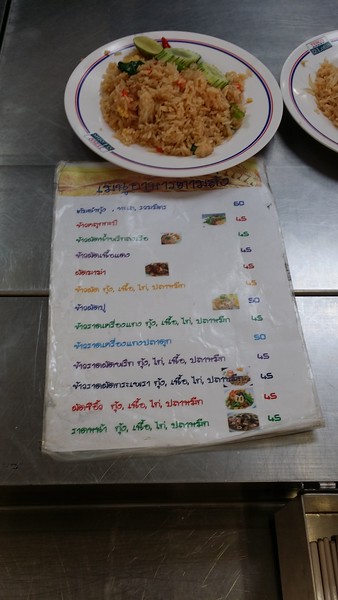 เมนูอาหารตามสั่ง
ต้มยำกุ้ง , ทะเล, รวมมิตร 60
ข้าวคลุกกะปิ 45
ข้าวผัดน้ำพริกลงเรือ 45
ข้าวผัดเนื้อแดง 45
ผัดมาม่า 45
ข้าวผัด กุ้ง, เนื้อ, ไก่, ปลาหมึก 45
ข้าวผัดปู 50
ข้าวราดเครื่องแกง กุ้ง, เนื้อ, ไก่, ปลาหมึก 45
ข้าวราดเครื่องแกงปลาดุก 50
ข้าวราดผัดพริก กุ้ง, เนื้อ, ไก่, ปลาหมึก 45
ข้าวราดผัดกระเพรา กุ้ง, เนื้อ, ไก่, ปลาหมึก 45
ผัดซีอิ้ว กุ้ง, เนื้อ, ไก่, ปลาหมึก 45
ราดหน้า กุ้ง, เนื้อ, ไก่, ปลาหมึก 45